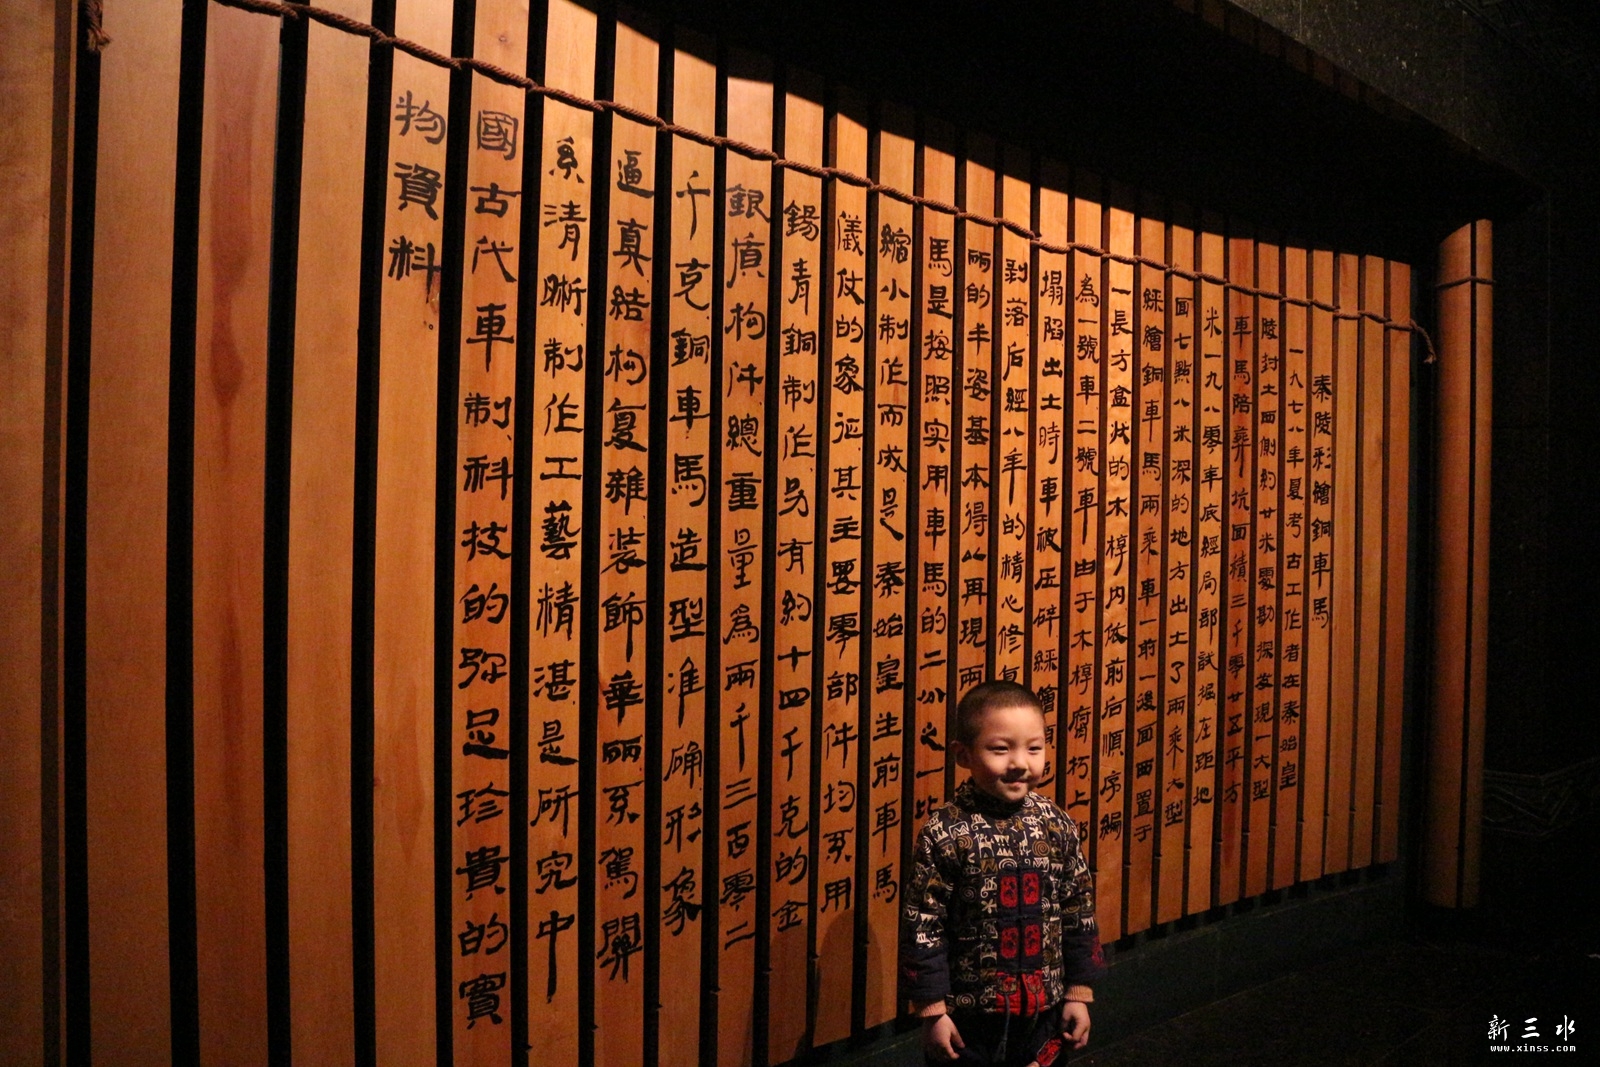 秦陵彩繪銅車馬
一九七八年夏考古工作者在秦始皇
陵封土西側約廿米處勘探发現一大型
車馬陪葬坑面積三千零廿五平方
米一九八零年底經局部試掘在距地
面七點八米深的地方出土了兩乘大型
綵繪銅車馬兩乘車一前一後面西置于
一長方盒狀的木椁内依前后順序編
為一號車二號車由于木椁腐朽上部
塌陷出土時車被压碎綵繪
剥落后經八年的精心修复
丽的丰姿基本得以再現兩
馬是按照实用車馬的二分之一比
縮小制作而成是秦始皇生前車馬
儀仗的象征其主要零部件均系用
錫青銅制作另有約十四千克的金
銀質构件總重量爲兩千三百零二
千克銅車馬造型准确形象
逼真結构复雜装飾華丽系駕關
系清晰制作工藝精湛是研究中
國古代車制科技的弥足珍貴的實
物資料。
新三水
www.xinss.com